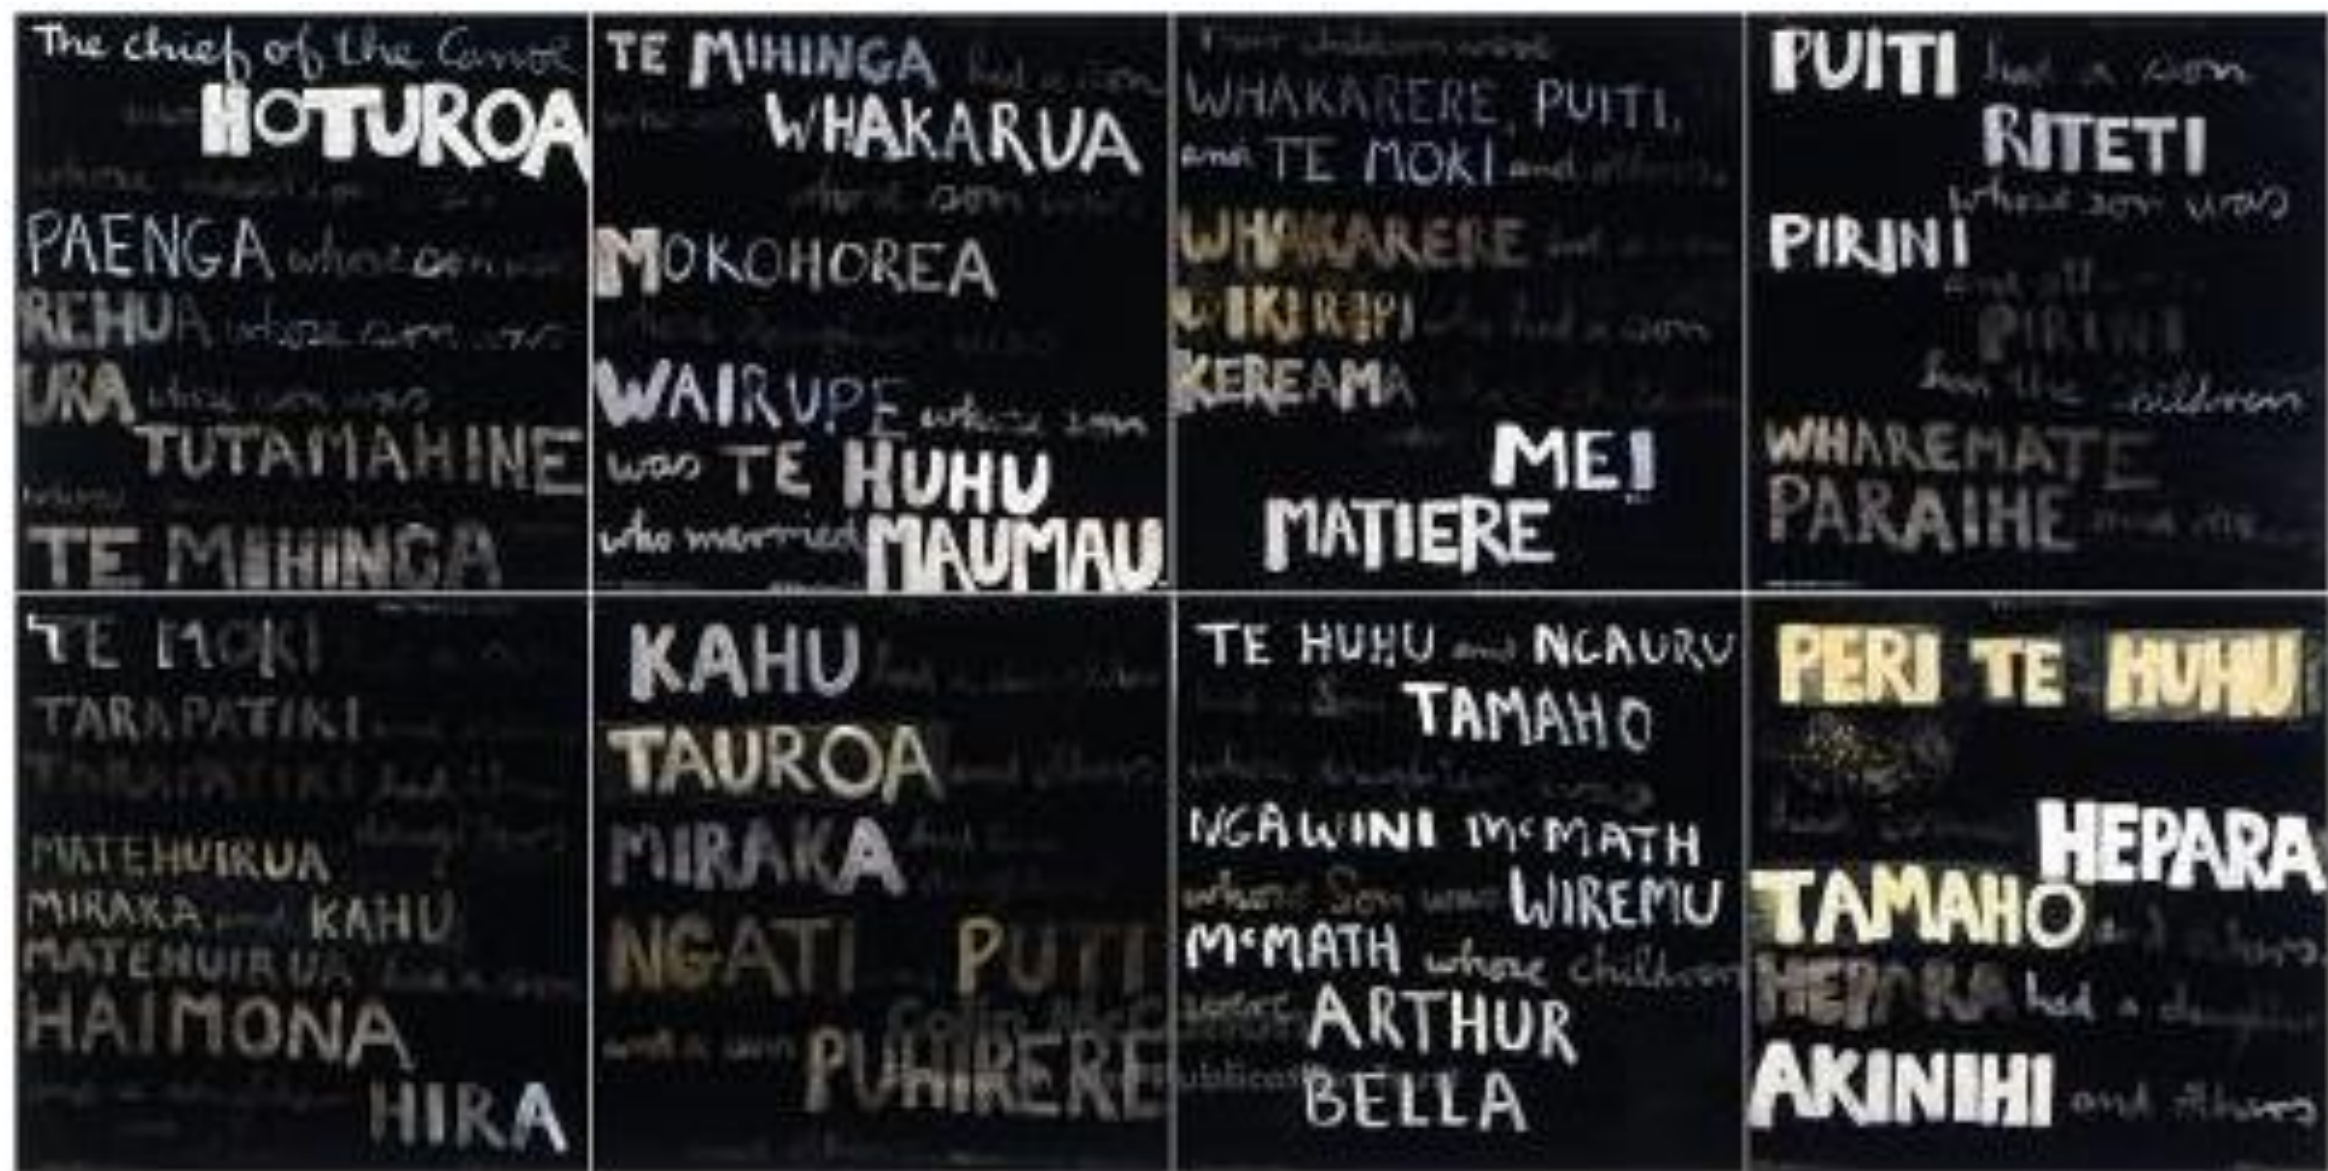 The chief of the Canoe
was HOTUROA
whose
PAENGA whose son was
REHUA whose son was
URA whose son was
TUTAMAHINE
TE MIHINGA
TE MIHINGA had a son
WHAKARUA
whose son was
MOKOHOREA
whose daughter was
WAIRUPE whose son
was TE HUHU
who married MAUMAU
Their children were
WHAKARERE, PUITI,
and TE MOKI and others.
WHAKARERE had a son
WIKIRIPI who had a son
KEREAMA
MEI
MATIERE
PUITI had a son
RITETI
whose son was
PIRINI
PIRINI
had the children
WHAREMATE
PARAIHE
TE MOKI had a
TARAPATIKI
TARAPATIKI had
daughters
MATEHUIRUA
MIRAKA and KAHU
MATEHUIRUA had a son
HAIMONA
HIRA
KAHU had
TAUROA and others
MIRAKA had
NGATI PUTI
and a son PUHIRERE
TE HUHU and NGAURU
had a Son TAMAHO
whose daughter was
NGAWINI McMATH
whose Son was WIREMU
McMATH whose children
were ARTHUR
BELLA
PERI TE HUHU
had HEPARA
TAMAHO and others.
HEPARA had a daughter
AKINIHI and others